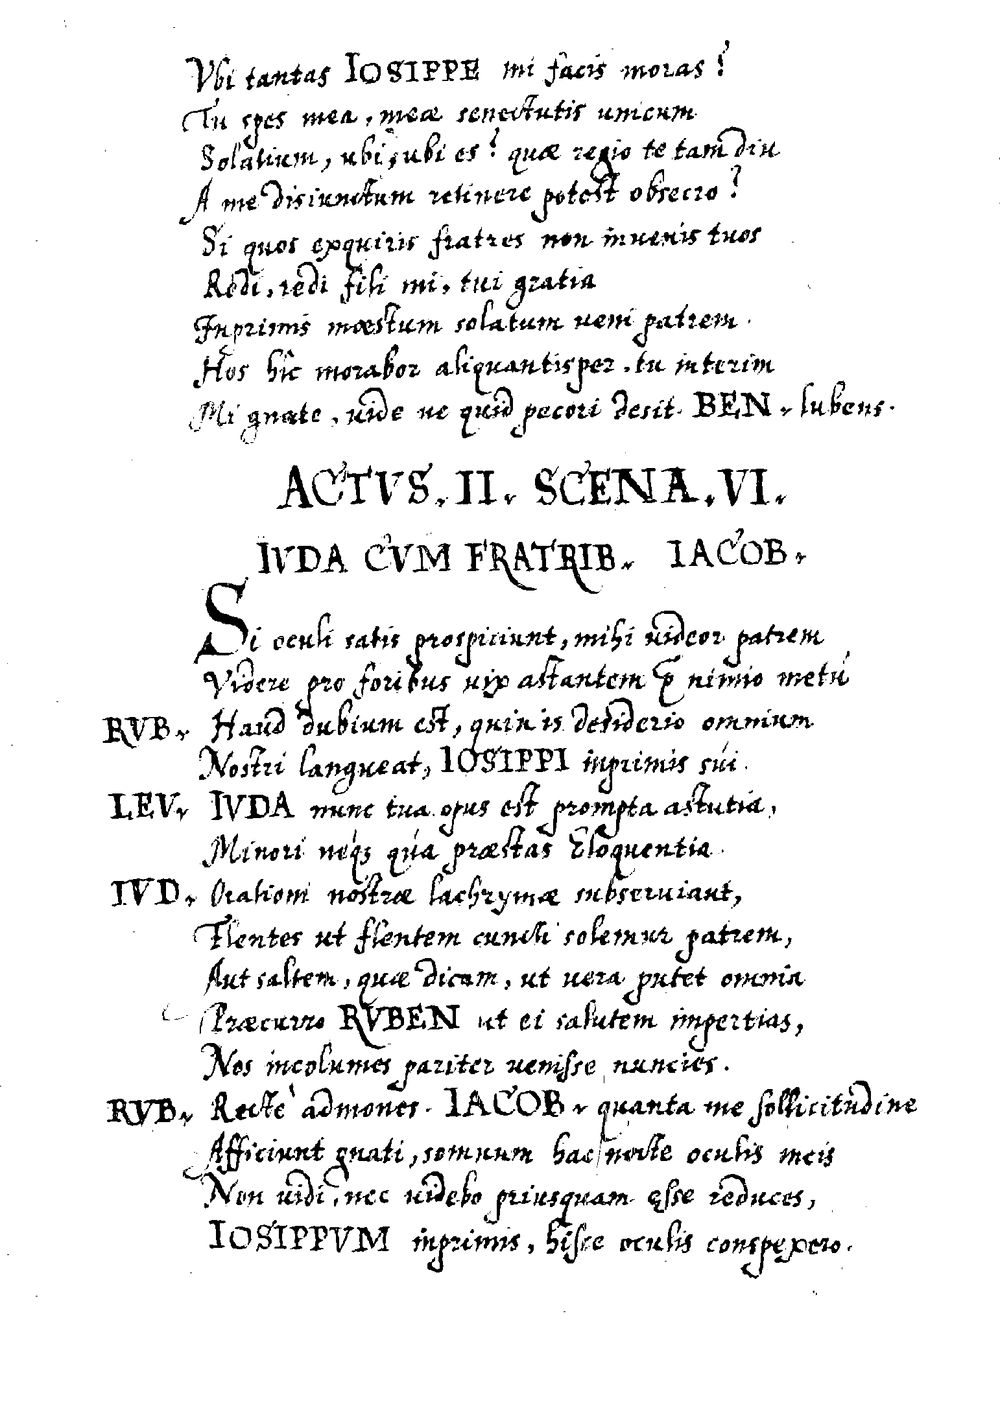 Vbi tantas IOSIPPE mi facis moras?
Tu spes mea, meæ senectutis unicum
Solatium, ubi, ubi es? quæ regio te tam diu
A me disiunctum retinere potest obsecro?
Si quos exquiris fratres non invenis tuos
Redi, redi fili mi, tui gratia
Inprimis mœstum solatum veni patrem.
Hos hîc morabor aliquantisper, tu interim
Mi gnate, vide ne quid pecori desit. BEN. lubens.
ACTVS. II. SCENA. VI.
IVDA CVM FRATRIB. IACOB.
Si oculi satis prospiciunt, mihi videor patrem
Videre pro foribus vix astantem p̱ nimio metu
RVB. Haud dubium est, quin is desiderio omnium
Nostri langueat, IOSIPPI inprimis sui.
LEV. IVDA nunc tua opus est prompta astutia,
Minori neq́; quâ præstas Eloquentia.
IVD. Orationi nostræ lachrymæ subserviant,
Flentes ut flentem cuncti solemur patrem,
Aut saltem, quæ dicam, ut vera putet omnia
Præcurro RVBEN ut ei salutem impertias,
Nos incolumes pariter venisse nuncies.
RVB. Rectè admones. IACOB. quanta me sollicitudine
Afficiunt gnati, somnum hac nocte oculis meis
Non vidi, nec videbo priusquam esse reduces,
IOSIPPVM inprimis, hisce oculis conspexero.